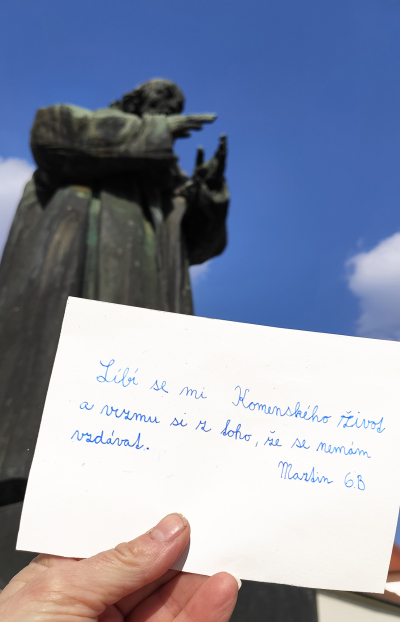 Líbí se mi Komenského život
a vezmu si z toho, že se nemám
vzdávat.
Martin 6.B